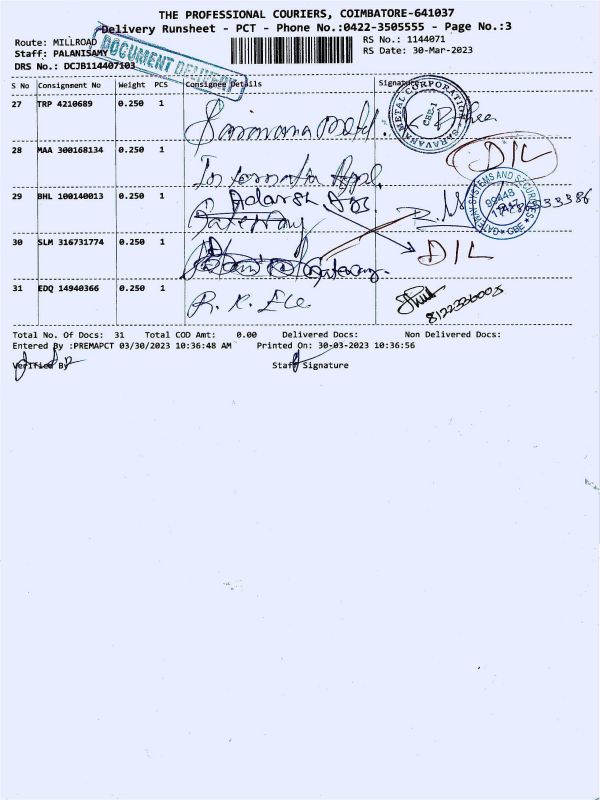 THE PROFESSIONAL COURIERS, COIMBATORE-641037
Delivery Runsheet - PCT - Phone No.:0422-3505555 - Page No.:3
Route: MILLROAD
RS No.: 1144071
Staff: PALANISAMY
RS Date: 30-Mar-2023
DRS No.: DCJB114407103
DOCUMENT DELIVERY
S No Consignment No Weight PCS Consignee Details Signature
27 TRP 4210689 0.250 1 Saravana Metal
SARAVANA METAL CORPORATION CBE-1
28 MAA 300168134 0.250 1
D/L
29 BHL 100140013 0.250 1 Adarsh
Gateway
GATEWAY SYSTEMS AND SECURITIES CBE
30 SLM 316731774 0.250 1 Gateway
D/L
31 EDQ 14940366 0.250 1 R. K. Ele
8122326002
Total No. Of Docs: 31 Total COD Amt: 0.00 Delivered Docs: Non Delivered Docs:
Entered By :PREMAPCT 03/30/2023 10:36:48 AM Printed On: 30-03-2023 10:36:56
Verified By Staff Signature